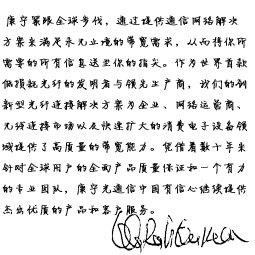 康宁紧跟全球步伐，通过提供通信网络解决
方案来满足永无止境的带宽需求，从而将你所
需要的所有信息送至你的指尖。作为世界首款
低损耗光纤的发明者与领先生产商，我们的创
新型光纤连接解决方案为企业、网络运营商、
无线连接市场以及快速扩大的消费电子设备领
域提供了高质量的带宽能力。凭借着数十年来
针对全球用户的全面产品质量保证和一个有力
的专业团队，康宁光通信中国有信心继续提供
杰出优质的产品和客户服务。